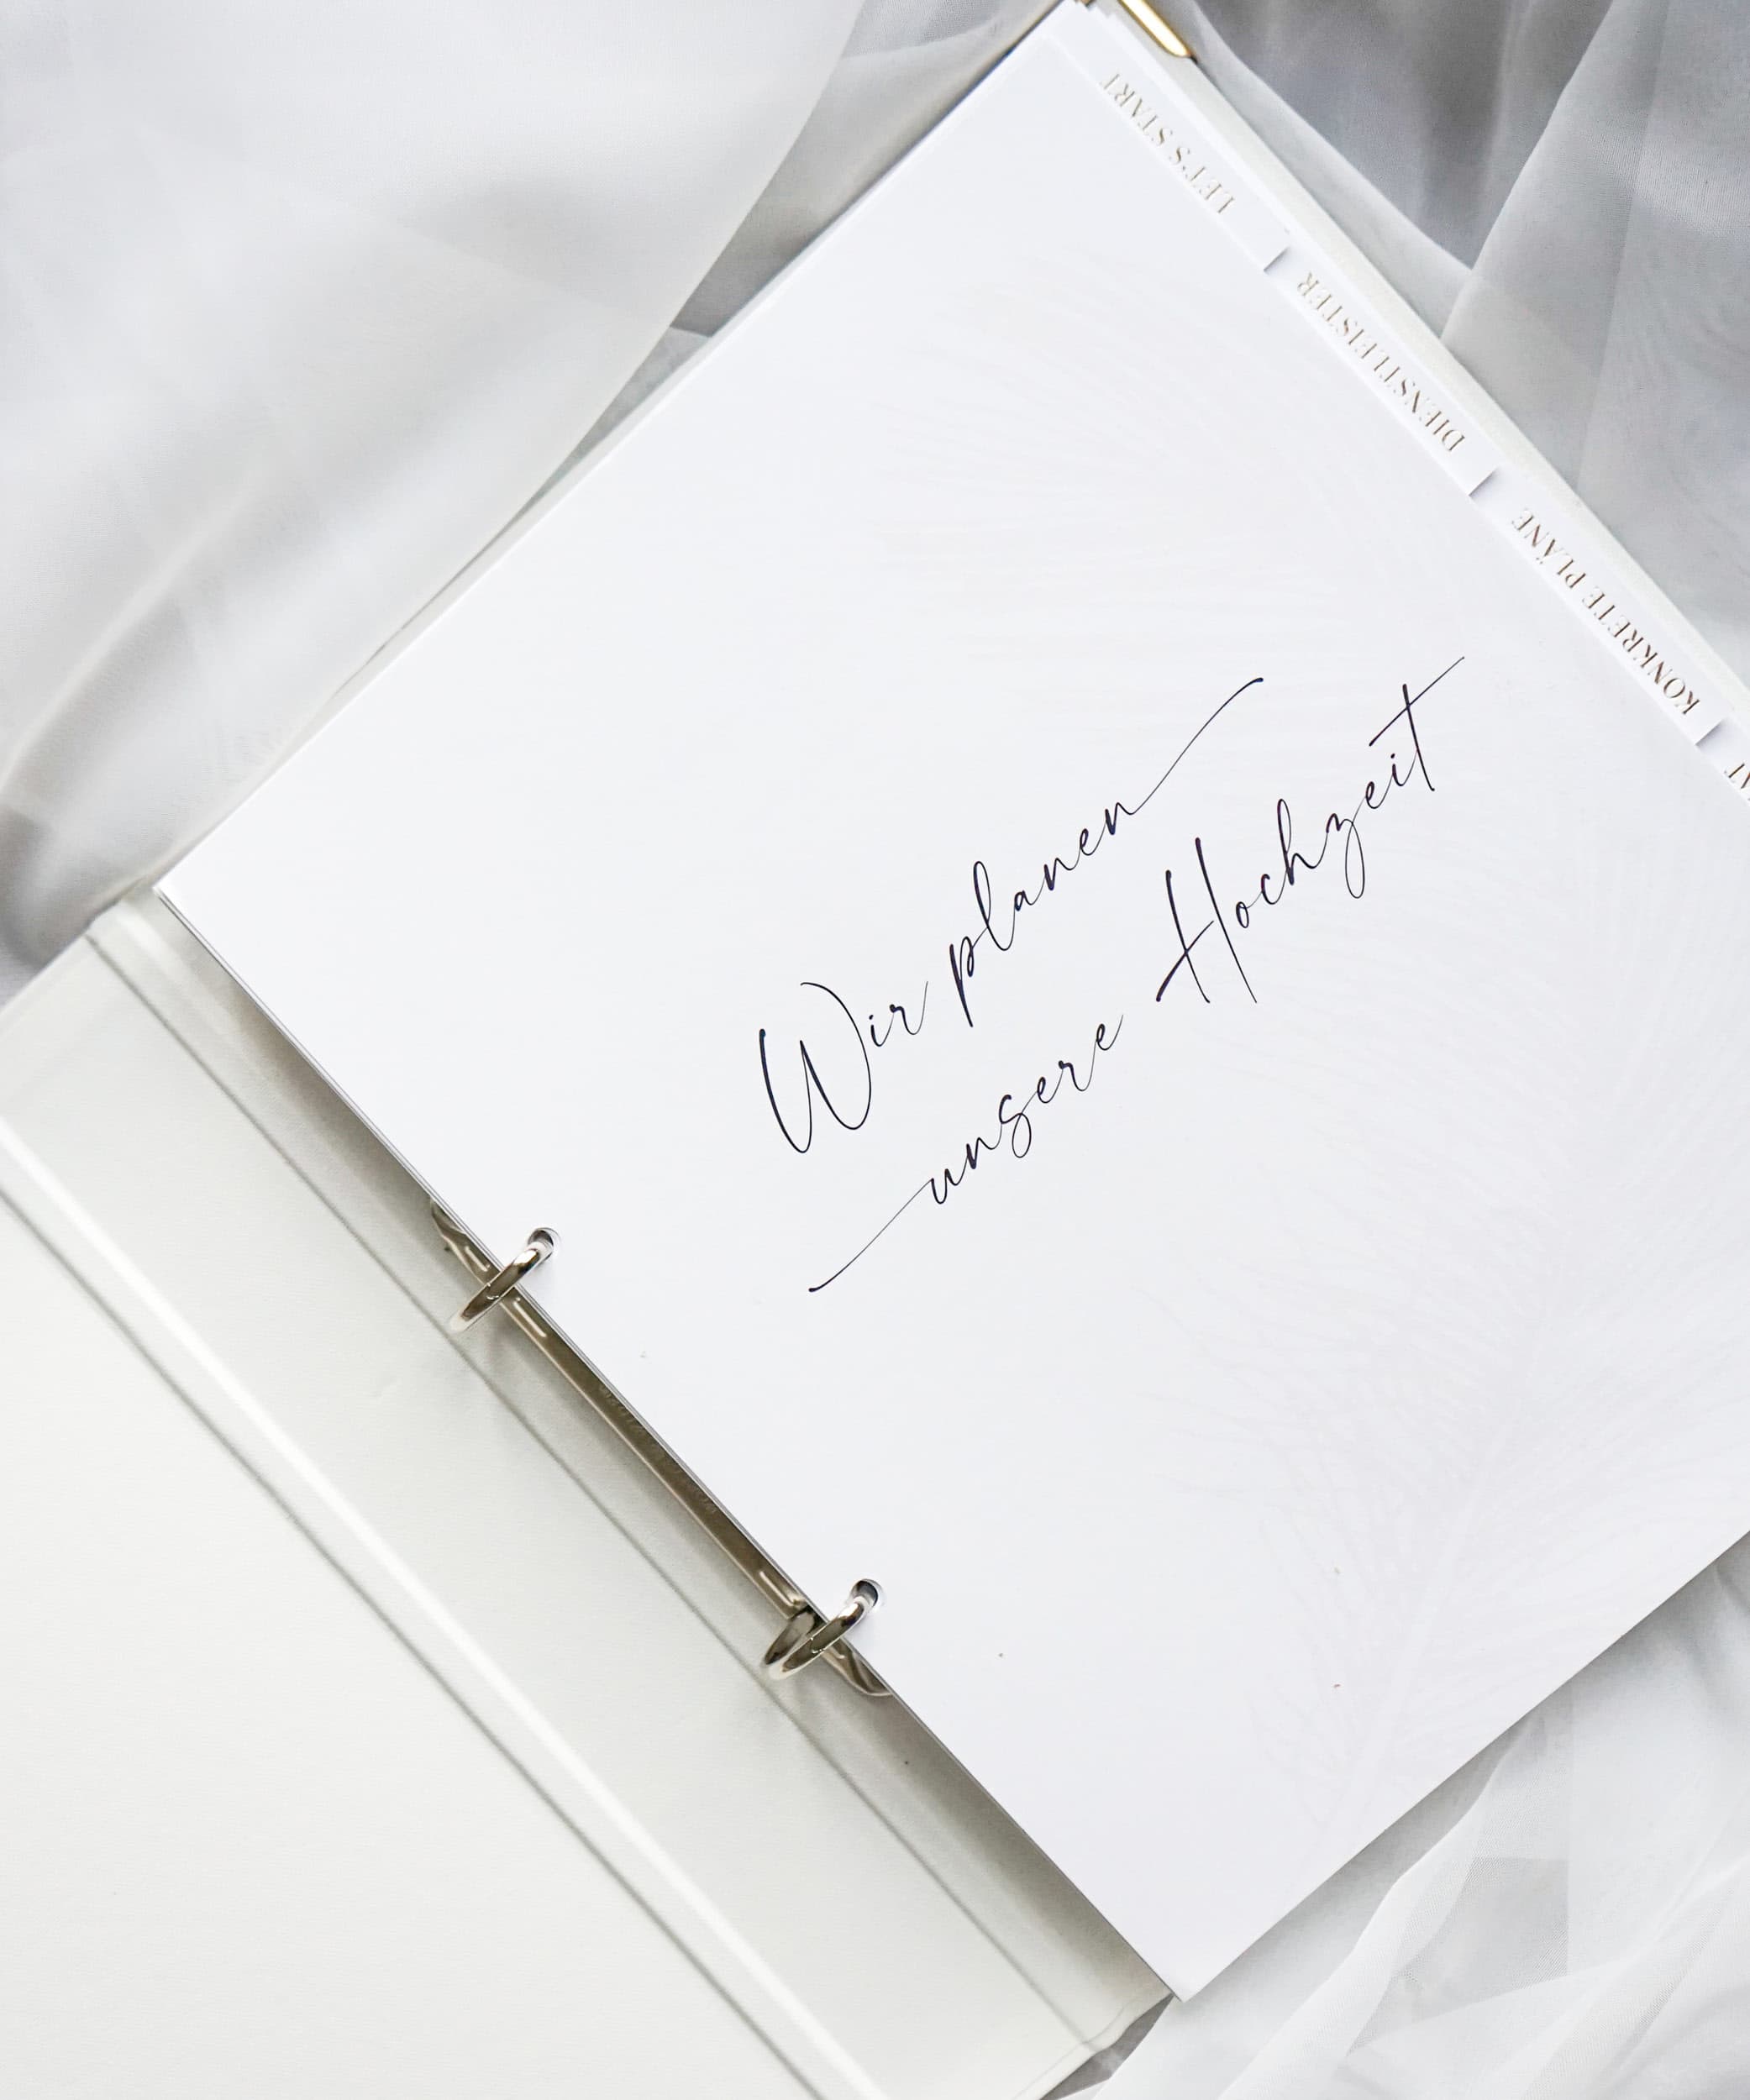 Wir planen
unsere Hochzeit
LET'S START
DIENSTLEISTER
KONKRETE PLÄNE